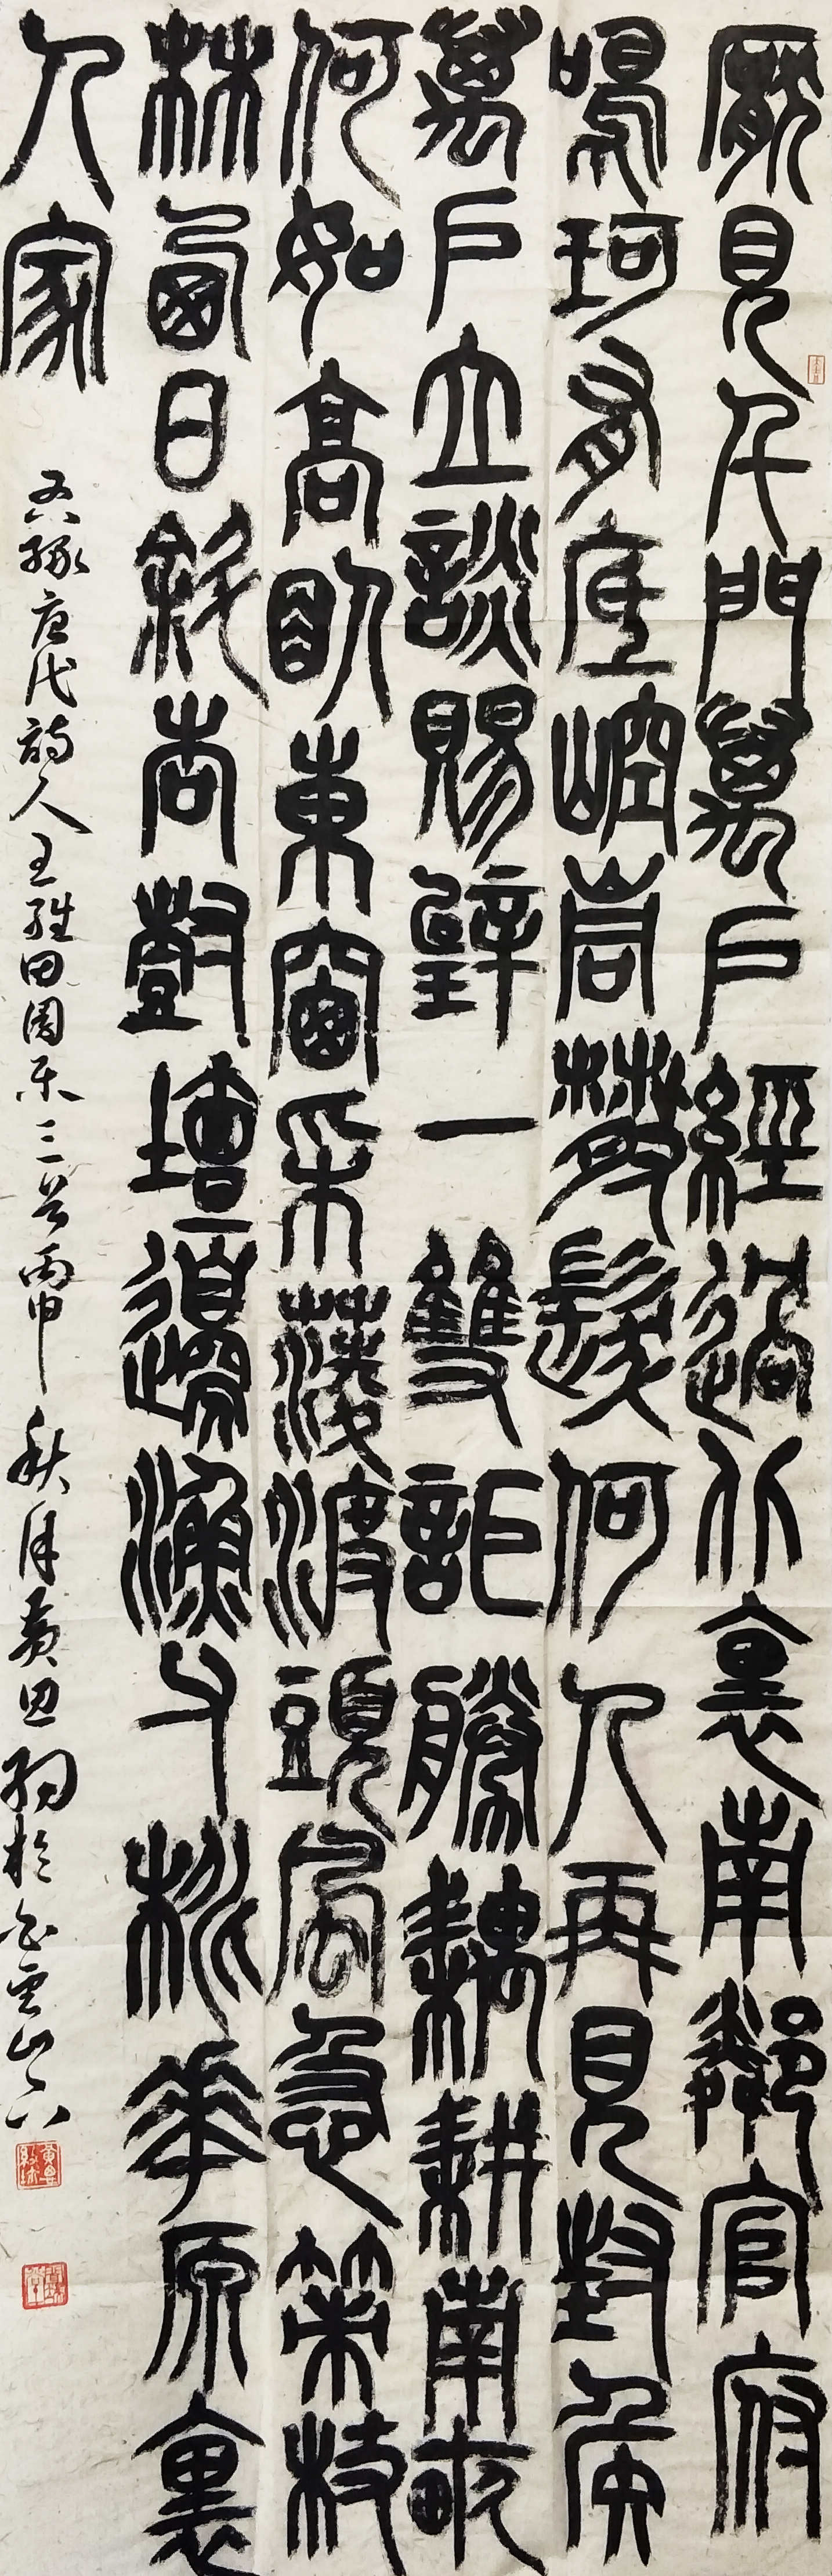 厭見千門萬戶經過北裏南鄰官府
鳴珂有底崆峒散髮何人再見封侯
萬戶立談賜璧一雙詎勝耦耕南畝
何如高臥東窗采菱渡頭風急策杖
林西日斜杏樹壇邊漁父桃花原裏
人家
右錄唐代詩人王維田園樂三首丙申秋月黃於白雲山下